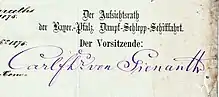 Der Aufsichtsrath
der Bayer.-Pfälz. Dampf-Schlepp-Schiffahrt.
1876.
Der Vorsitzende:
Carl Frhr von Gienanth